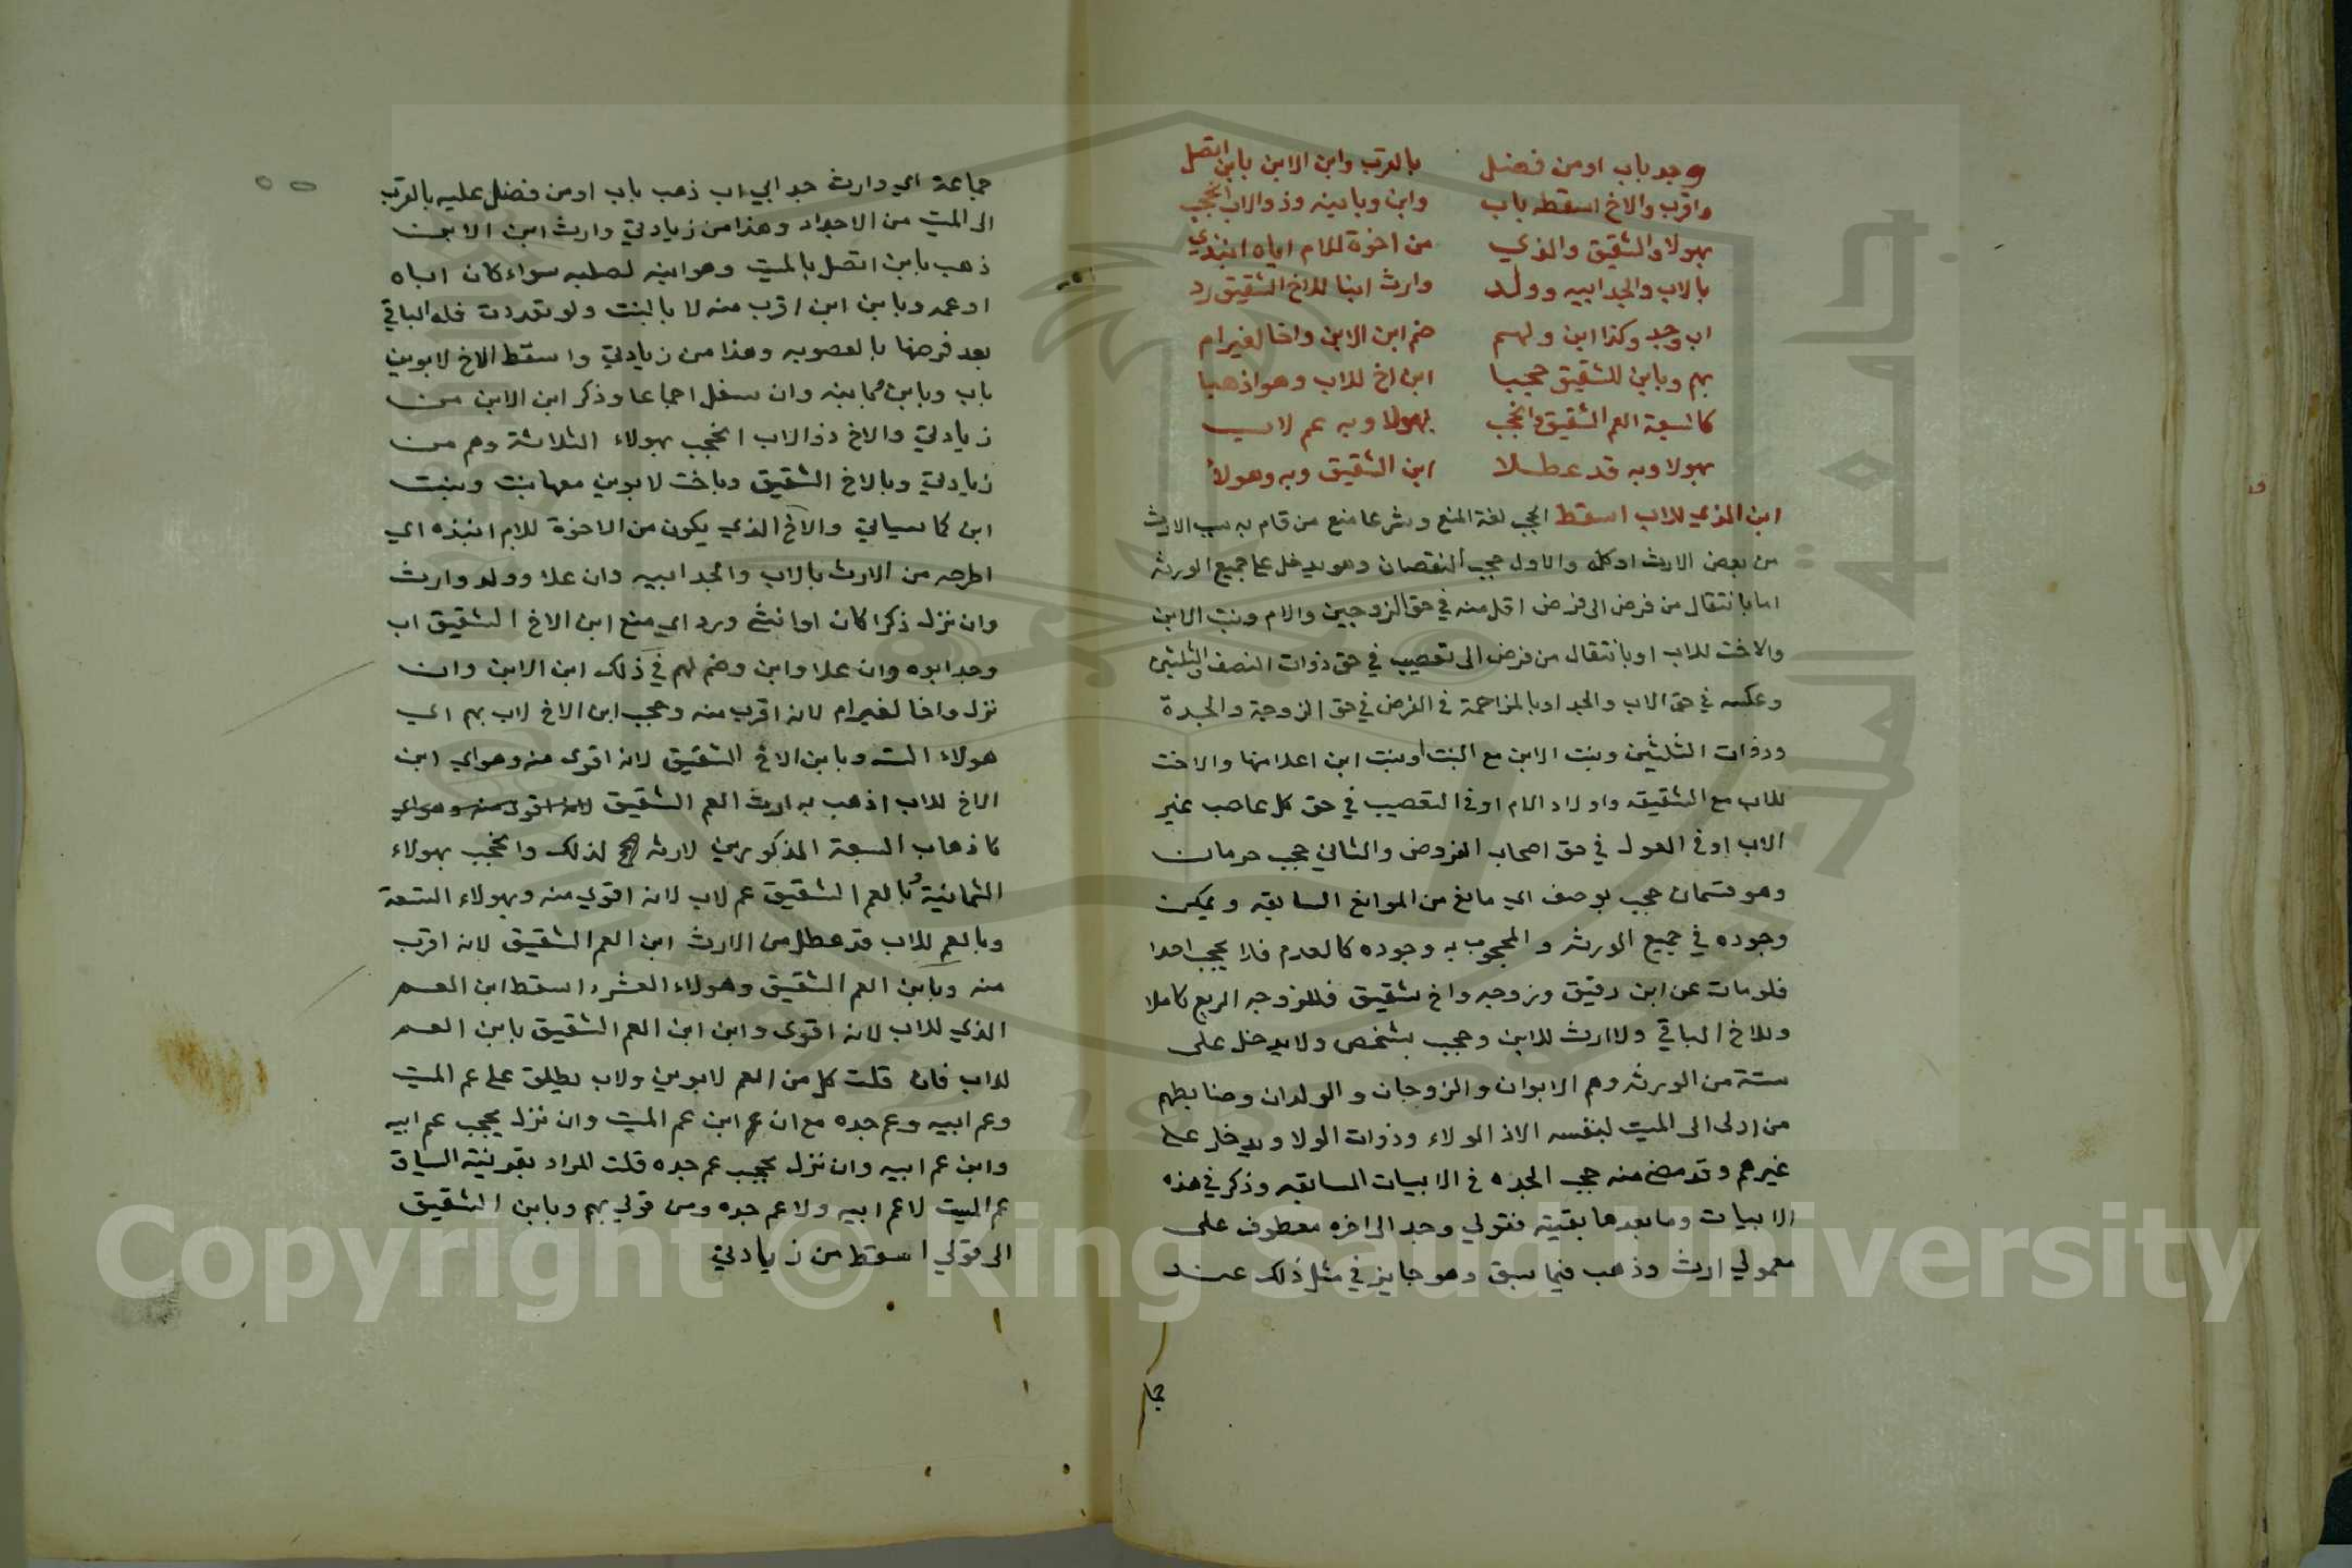 وجد باب اومن فضل بالقرب وابن الابن بابن اتصل
واقرب والاخ اسقطه باب وابن وبابنه وذو الاب انحجب
بهولا والشقيق والذي من اخوة للام اياه انبذي
بالاب والجد ابيه وولد وارث ابنا للاخ الشقيق رد
اب وجد وكذا ابن ولهم ضم ابن الابن واخا لغير ام
بهم وبابن للشقيق حجبا ابن اخ للاب وهو اذهبا
كالسبعة العم الشقيق وانحجب بهولا وبه عم لاب
بهولا وبه قد عطلا ابن الشقيق وبه وهولا
ابن الذي للاب اسقط الحجب لغة المنع وشرعا منع من قام به سبب الارث
من بعض الارث اوكله والاول حجب النقصان وهو يدخل على جميع الورثه
اما بانتقال من فرض الى فرض اقل منه في حق الزوجين والام وبنت الابن
والاخت للاب او بانتقال من فرض الى تعصيب في حق ذوات النصف والثلثين
وعكسه في حق الاب والجد او بالمزاحمة في الفرض في حق الزوجة والجدة
وذوات الثلثين وبنت الابن مع البنت او بنت ابن اعلا منها والاخت
للاب مع الشقيقه واولاد الام اوفي التعصيب في حق كل عاصب غير
الاب اوفي العول في حق اصحاب الفروض والثاني حجب حرمان
وهو قسمان حجب بوصف اي مانع من الموانع السابقه ويمكن
وجوده في جميع الورثه والمحجوب به وجوده كالعدم فلا يحجب احدا
فلومات عن ابن رقيق وزوجه واخ شقيق فللزوجه الربع كاملا
وللاخ الباقي ولا ارث للابن وحجب بشخص ولا يدخل على
ستة من الورثه وهم الابوان والزوجان والولدان وضابطهم
من ادلى الى الميت بنفسه الا ذا الولاء وذوات الولا ويدخل على
غيرهم وقد مضى منه حجب الجده في الابيات السابقه وذكر في هذه
الابيات وما بعدها بقيته فقولي وجد الى اخره معطوف على
معمولي ارث وذهب فيما سبق وهو جايز في مثل ذلك عند
جما
جماعة اي وارث جد ابي اب ذهب باب اومن فضل عليه بالقرب
الى الميت من الاجداد وهذا من زيادتي وارث ابن الابن
ذهب بابن اتصل بالميت وهو ابنه لصلبه سواء كان اباه
اوعمه وبابن ابن اقرب منه لا بالبنت ولو تعددت فله الباقي
بعد فرضها بالعصوبه وهذا من زيادتي واسقط الاخ لابوين
باب وبابن وبابنه وان سفل اجماعا وذكر ابن الابن من
زيادتي والاخ ذو الاب انحجب بهولاء الثلاثة وهم من
زيادتي وبالاخ الشقيق وباخت لابوين معها بنت وبنت
ابن كما سياتي والاخ الذي يكون من الاخوة للام انبذه اي
اطرحه من الارث بالاب والجد ابيه وان علا وولد وارث
وان نزل ذكرا كان اوانثى ورد اي منع ابن الاخ الشقيق اب
وجد ابوه وان علا وابن وضم لهم في ذلك ابن الابن وان
نزل واخا لغير ام لانه اقرب منه وحجب ابن الاخ لاب بهم اي
هولاء الست وبابن الاخ الشقيق لانه اقوى منه وهو اي ابن
الاخ للاب اذهب به ارث العم الشقيق لانه اقوى منه وهو اي
كاذهاب السبعة المذكورين لارثه لذلك وانحجب بهولاء
الثمانية وبالعم الشقيق عم لاب لانه اقوي منه وبهولاء التسعة
وبالعم للاب قد عطل من الارث ابن العم الشقيق لانه اقرب
منه وبابن العم الشقيق وهولاء العشره اسقط ابن العم
الذي للاب لانه اقوى وابن ابن العم الشقيق بابن العم
للاب فان قلت كل من العم لابوين ولاب يطلق على عم الميت
وعم ابيه وعم جده مع ان ابن عم الميت وان نزل يحجب عم ابيه
وابن عم ابيه وان نزل يحجب عم جده قلت المراد بقرينة السياق
عم الميت لا عم ابيه ولا عم جده ومن قولي بهم وبابن الشقيق
الى قولي اسقط من زيادتي
Copyright © King Saud University